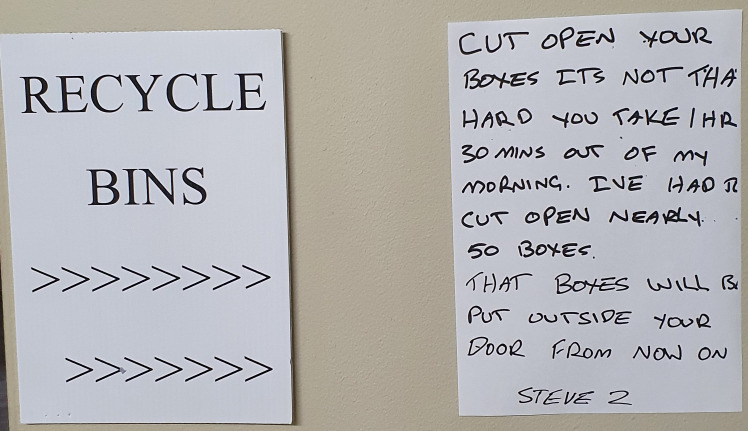 RECYCLE
BINS
>>>>>>>>
>>>>>>>
CUT OPEN YOUR
BOXES ITS NOT THA
HARD YOU TAKE 1HR
30 MINS OUT OF MY
MORNING. IVE HAD
CUT OPEN NEARLY
50 BOXES.
THAT BOXES WILL
PUT OUTSIDE YOUR
DOOR FROM NOW ON
STEVE 2